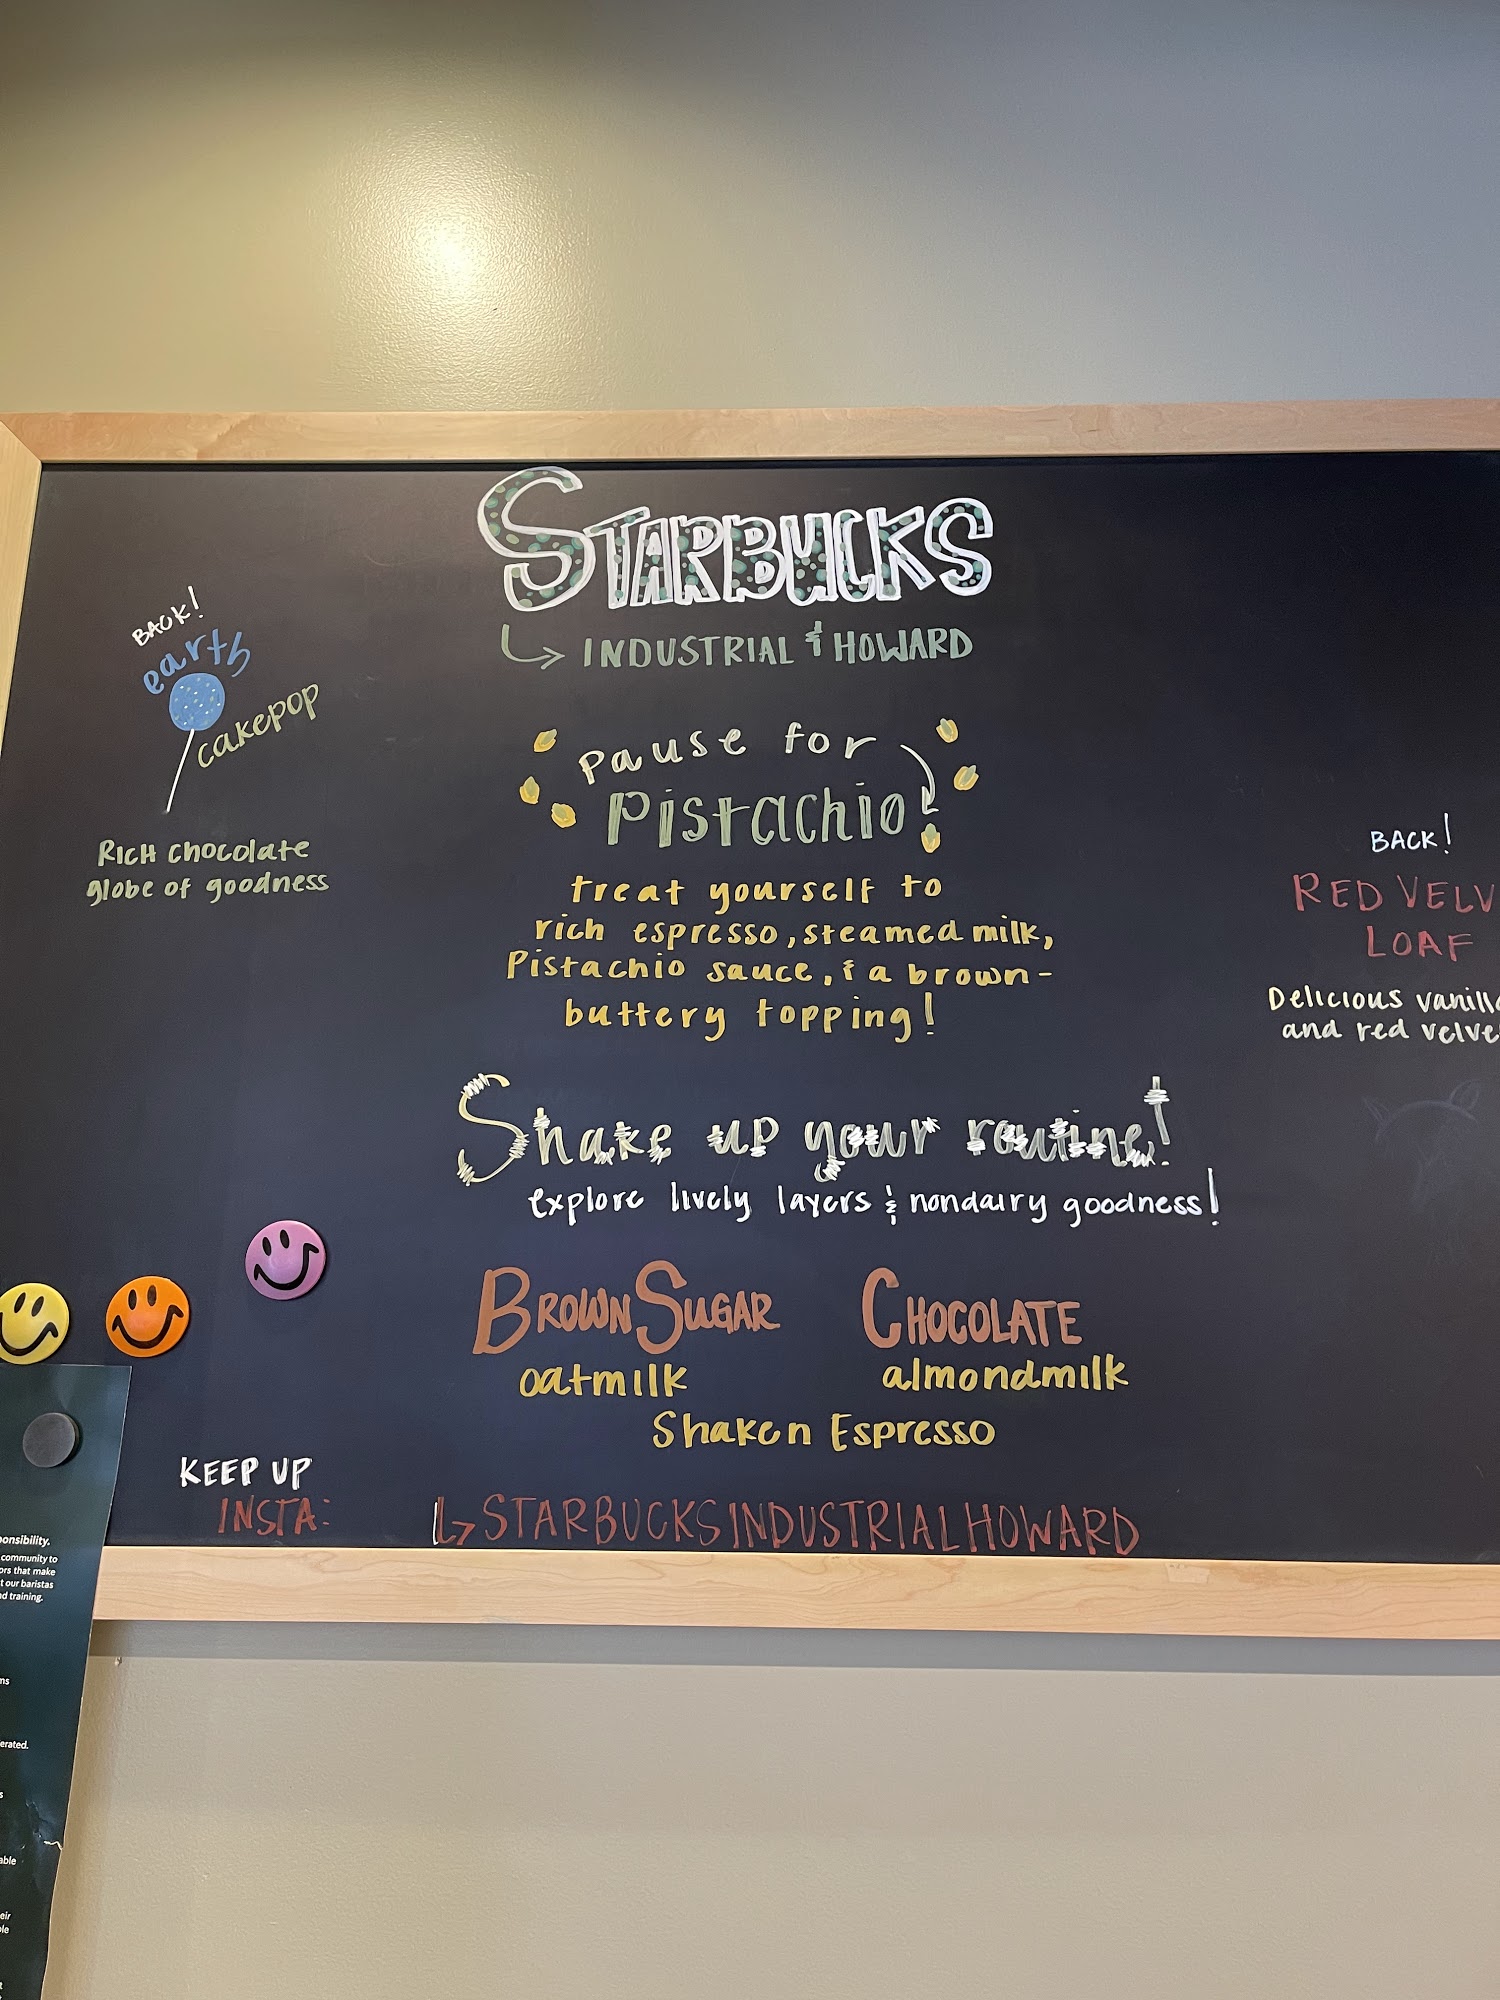 STARBUCKS
INDUSTRIAL & HOWARD
BACK!
earth
cakepop
RICH chocolate
globe of goodness
pause for
Pistachio!
treat yourself to
rich espresso, steamed milk,
Pistachio sauce, & a brown-
buttery topping!
BACK!
RED VELV
LOAF
Delicious vanilla
and red velve
Shake up your routine!
explore lively layers & nondairy goodness!
BROWN SUGAR
oatmilk
CHOCOLATE
almondmilk
Shaken Espresso
KEEP UP
INSTA: STARBUCKSINDUSTRIALHOWARD
onsibility.
community to
ors that make
t our baristas
nd training.
ms
erated.
able
eir
ble